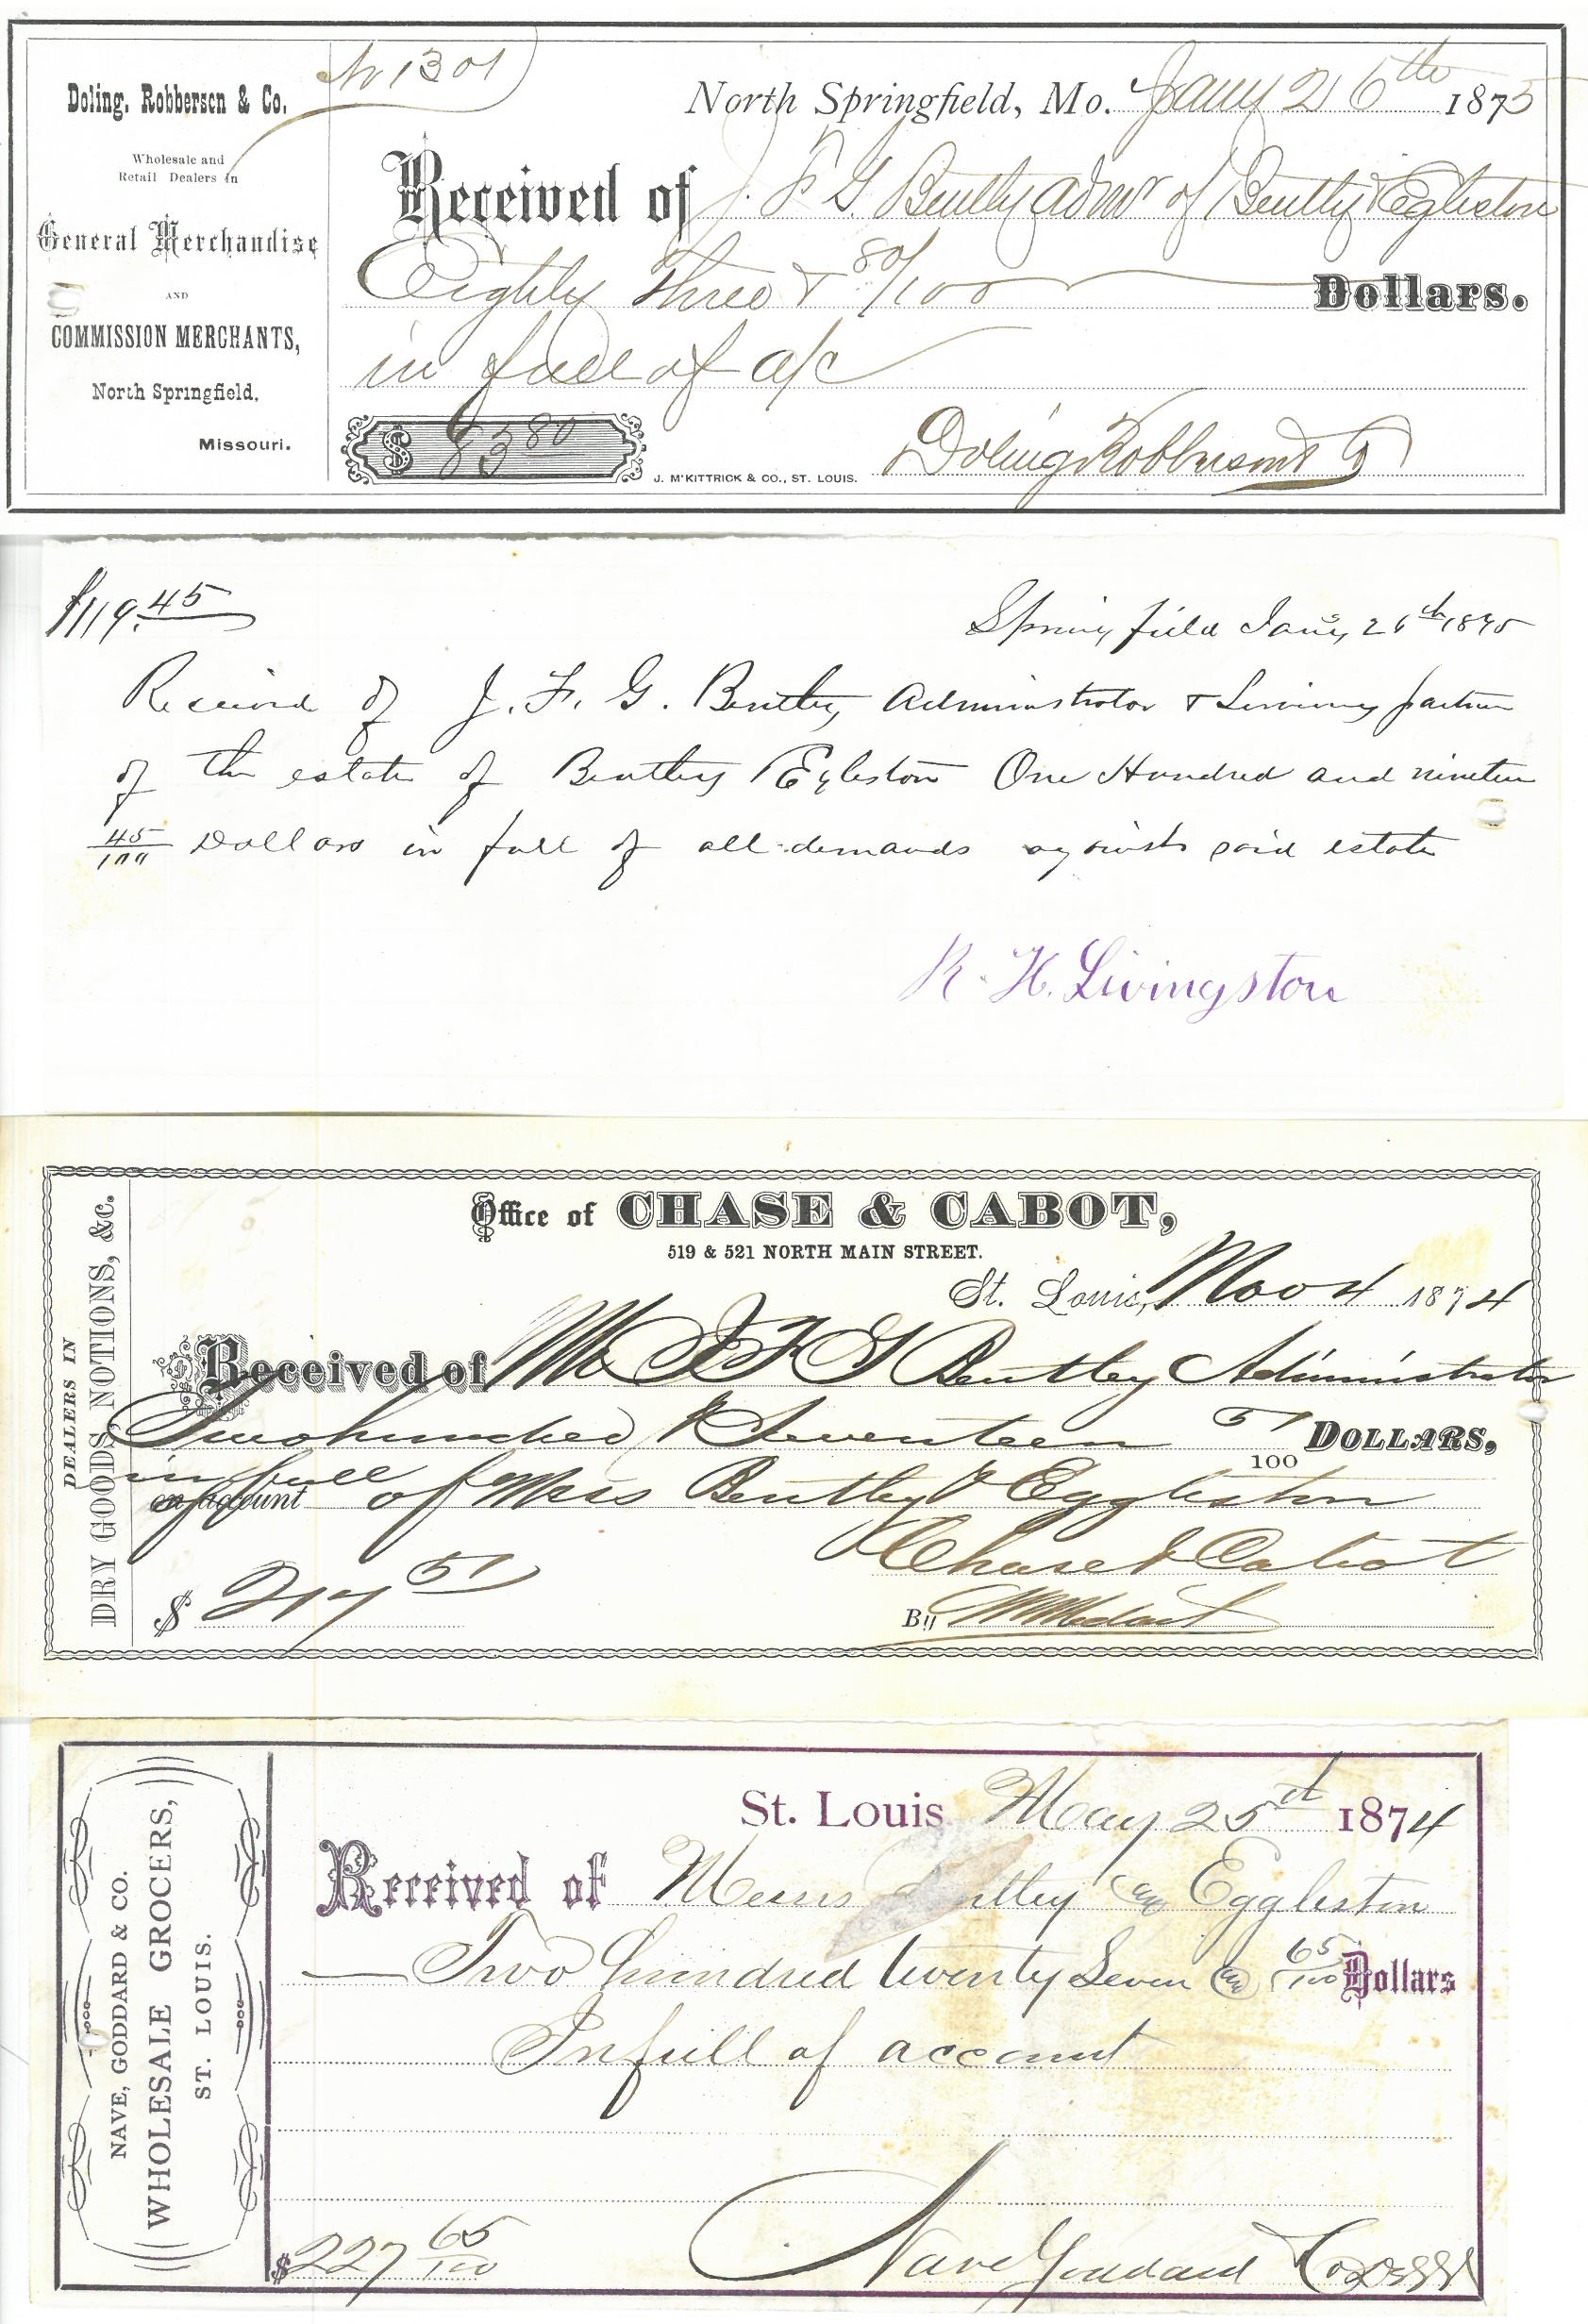 No 1301
Doling, Robberson & Co.
Wholesale and
Retail Dealers in
General Merchandise
AND
COMMISSION MERCHANTS,
North Springfield,
Missouri.
North Springfield, Mo. Jany 26th 1875
Received of J. F. G. Bently admr of Bently & Egleston
Eighty Three & 80/100 Dollars.
in full of a/c
$ 83 80
J. McKITTRICK & CO., ST. LOUIS.
Doling Robberson & Co
$119.45
Springfield Jany 26th 1875
Received of J. F. G. Bentley Administrator & Surviving partner
of the estate of Bentley & Egleston One Hundred and nineteen
45/100 Dollars in full of all demands against said estate
R. H. Livingston
DEALERS IN
DRY GOODS, NOTIONS, &c.
Office of CHASE & CABOT,
519 & 521 NORTH MAIN STREET.
St. Louis, Nov 4 1874
Received of Mr J F G Bentley Administrator
Two hundred & Seventeen 51/100 DOLLARS,
in full
on account of Mess Bentley & Eggleston
Chase & Cabot
$ 217 51
By
NAVE, GODDARD & CO.
WHOLESALE GROCERS,
ST. LOUIS.
St. Louis May 25th 1874
Received of Messrs Bentley & Eggleston
Two hundred twenty Seven & 65/100 Dollars
In full of account
$227 65/100
Nave Goddard & Co